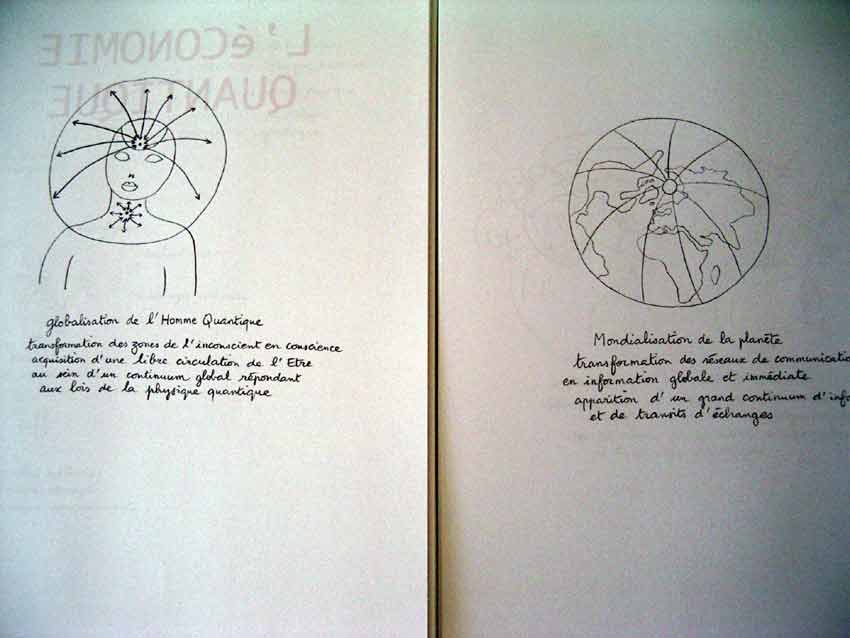 L'éCONOMIE
QUANTIQUE
globalisation de l'Homme Quantique
transformation des zones de l'inconscient en conscience
acquisition d'une libre circulation de l'Etre
au sein d'un continuum global répondant
aux lois de la physique quantique
Mondialisation de la planète
transformation des réseaux de communicatio
en information globale et immédiate
apparition d'un grand continuum d'info
et de transits d'échanges